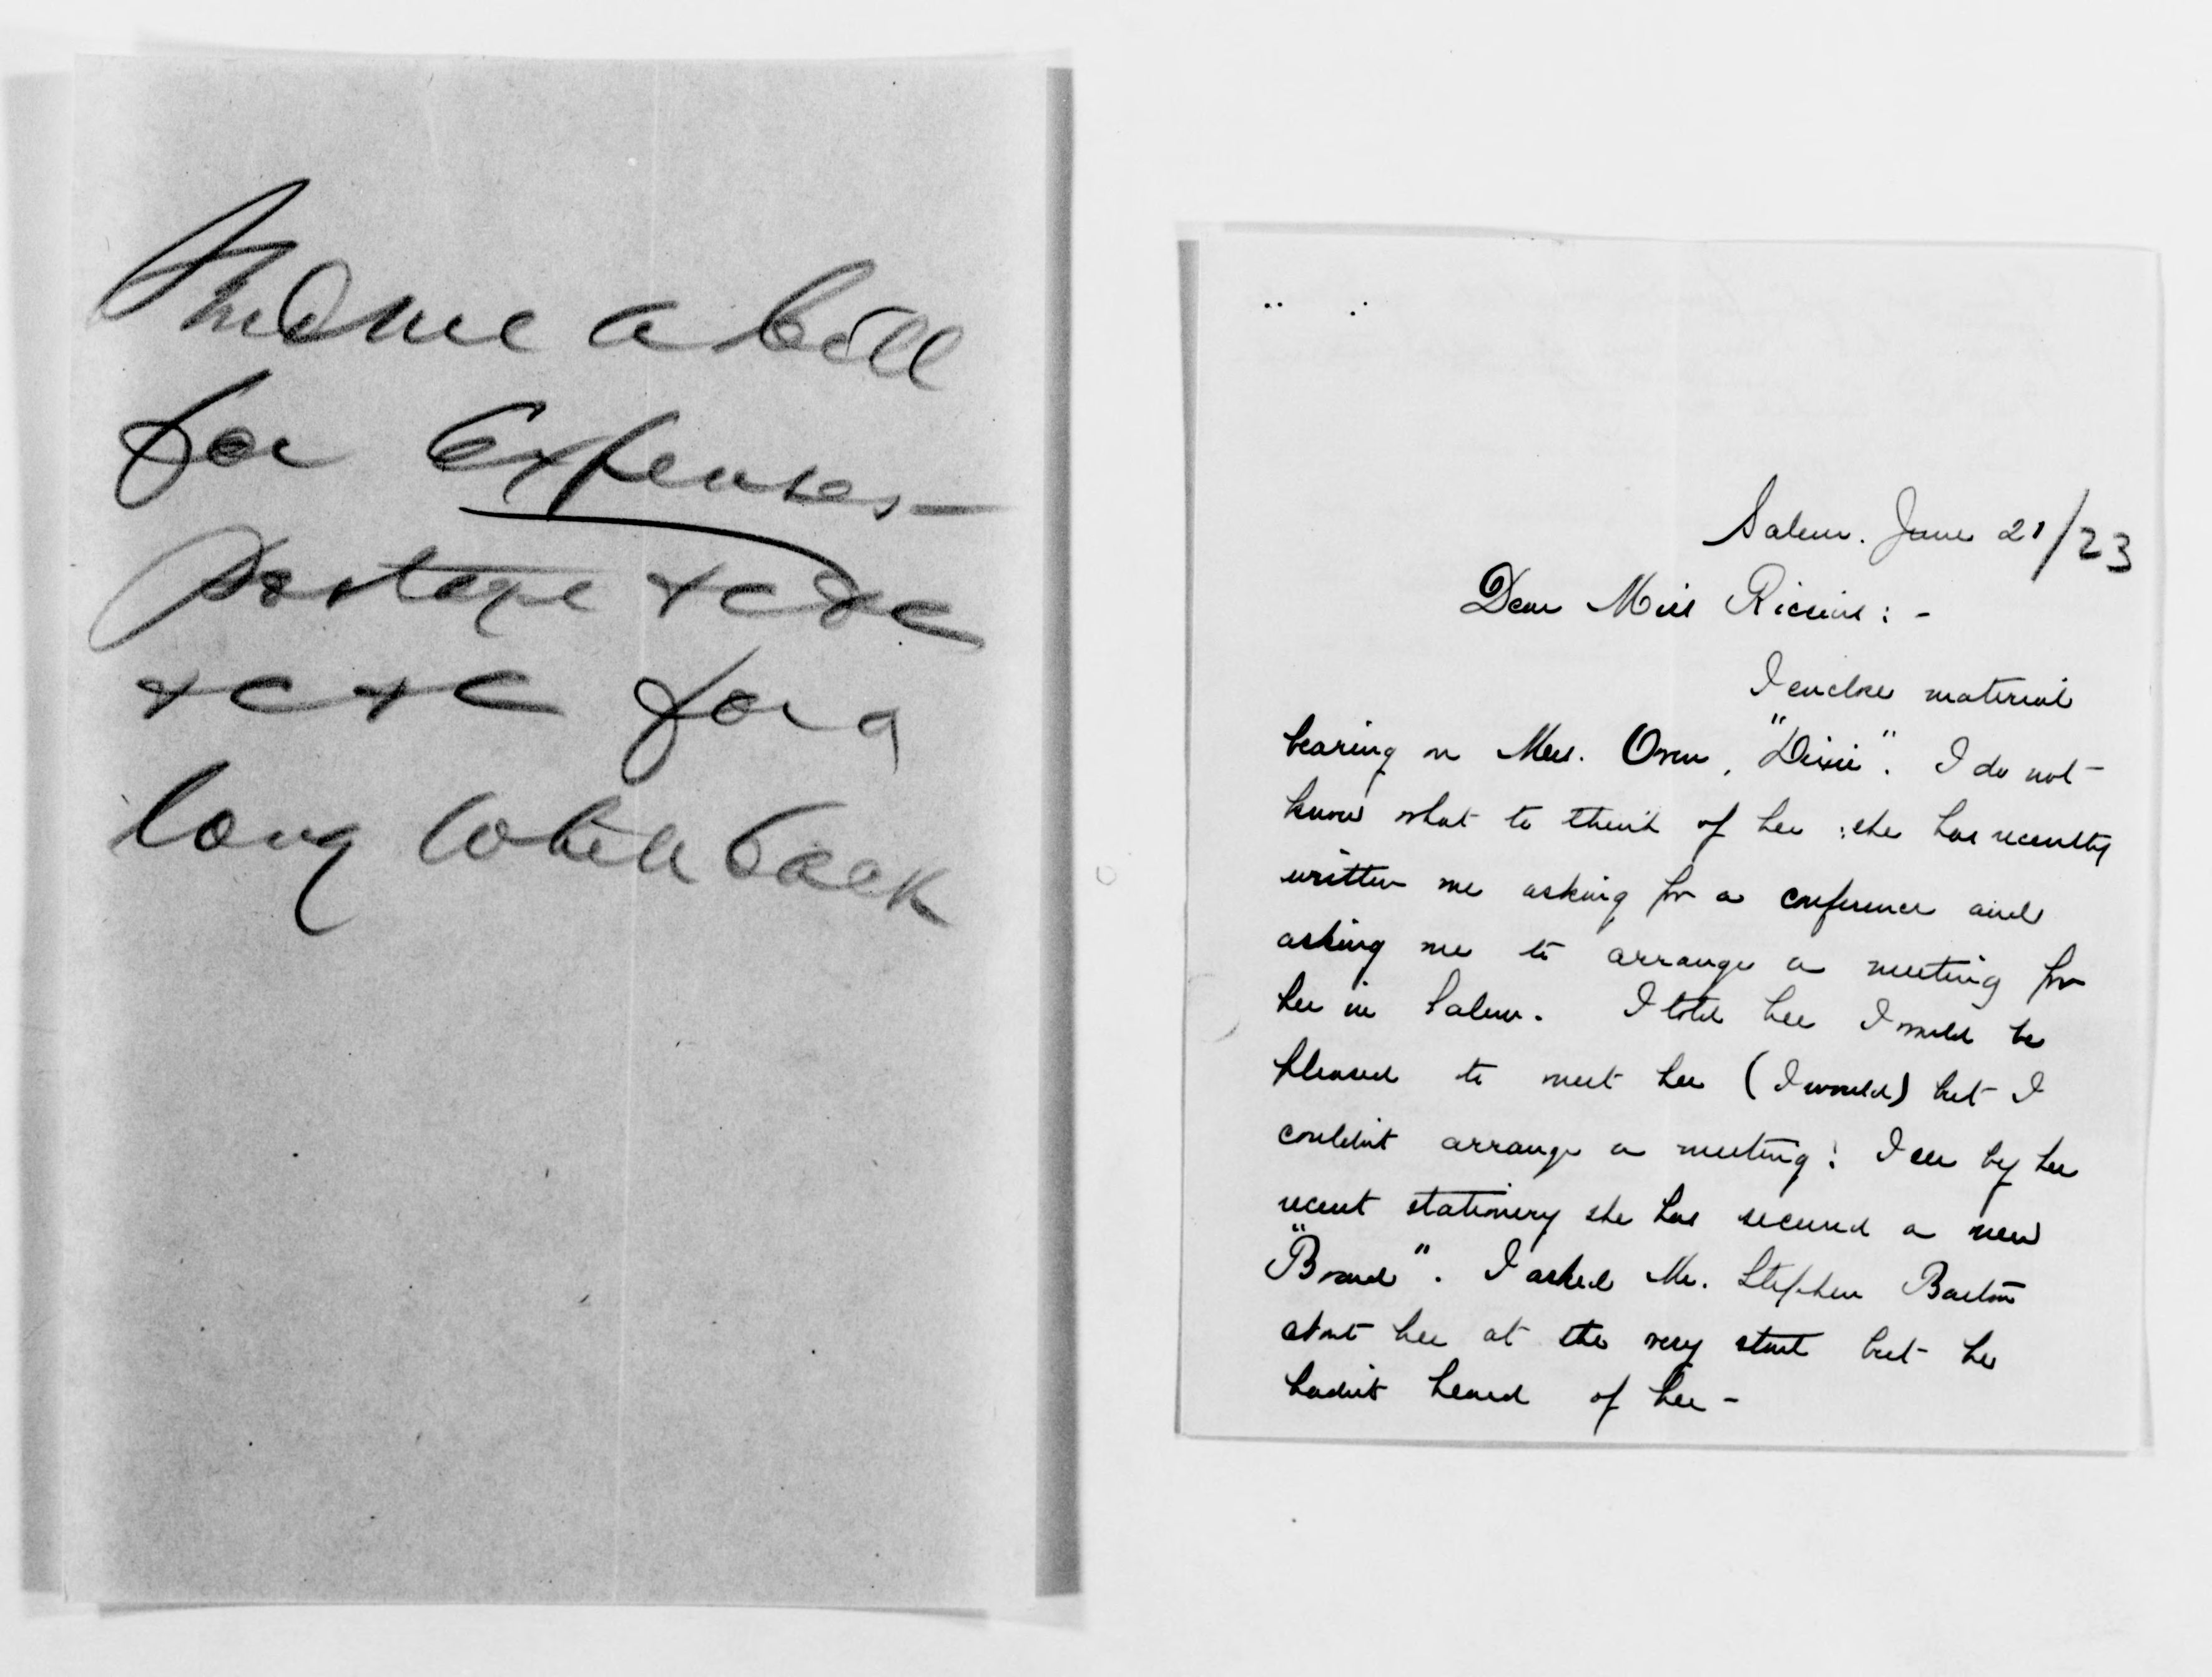 Send me a bill
for Expenses —
postage &c &c
&c &c for a
long while back
Salem. June 21/23
Dear Miss Riccius : -
I enclose material
bearing on Mrs. Oren, "Dixie". I do not
know what to think of her : she has recently
written me asking for a conference and
asking me to arrange a meeting for
her in Salem. I told her I would be
pleased to meet her (I would) but I
couldn't arrange a meeting : I see by her
recent stationery she has secured a new
"Board". I asked Mr. Stephen Barton
about her at the very start but he
hadn't heard of her -